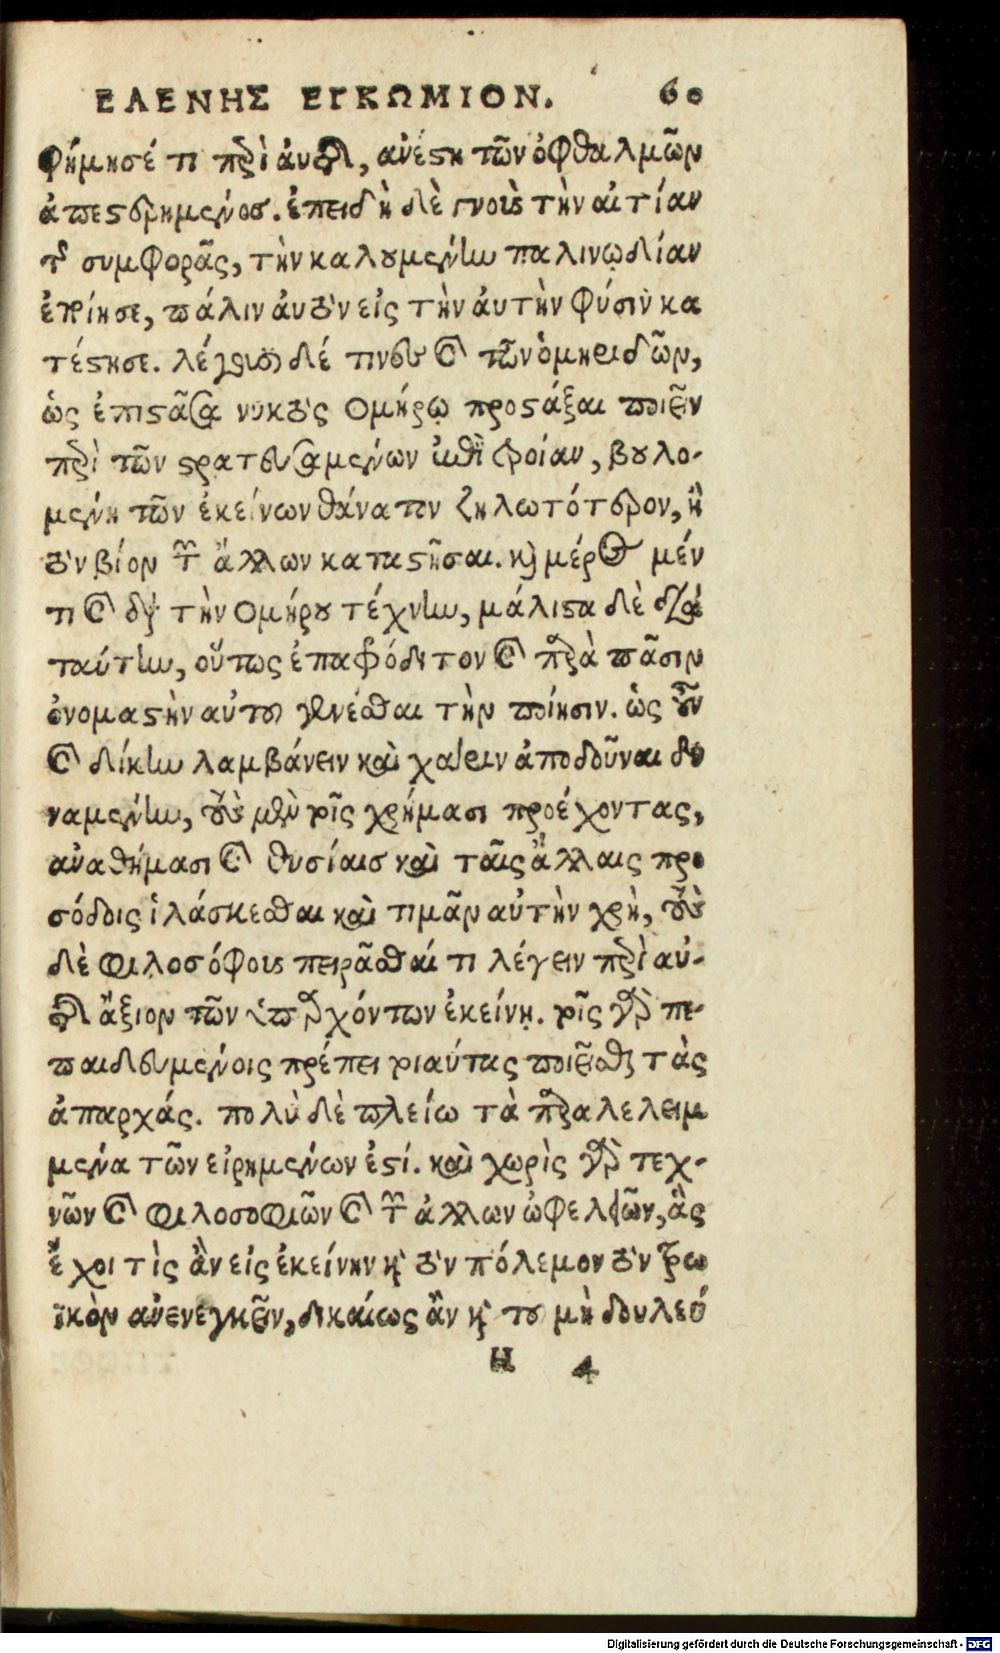 ΕΛΕΝΗΣ ΕΓΚΩΜΙΟΝ. 60
φήμησέ τι περὶ ἀυτῆς, ἀνέστη τῶν ὀφθαλμῶν
ἀπεστερημένος. ἐπειδὴ δὲ γνοὺς τὴν αἰτίαν
τῆς συμφορᾶς, τὴν καλουμένην παλινῳδίαν
ἐποίησε, πάλιν ἀυτὸν εἰς τὴν ἀυτὴν φύσιν κα
τέστησε. λέγουσι δέ τινες καὶ τῶν ὁμηριδῶν,
ὡς ἐπιστᾶσα νυκτὸς Ομήρῳ προστάξαι ποιεῖν
περὶ τῶν στρατευσαμένων ἐπὶ τροίαν, βουλο-
μένη τῶν ἐκείνων θάνατον ζηλωτότερον, ἢ
τὸν βίον τῶν ἄλλων καταστῆσαι. καὶ μέρος μέν
τι καὶ διὰ τὴν Ομήρου τέχνην, μάλιστα δὲ διὰ
ταύτην, οὕτως ἐπαφρόδιτον καὶ παρὰ πᾶσιν
ὀνομαστὴν αὐτοῦ γενέσθαι τὴν ποίησιν. ὡς οὖν
καὶ δίκην λαμβάνειν καὶ χάριν ἀποδοῦναι δυ
ναμένην, τοὺς μὲν τοῖς χρήμασι προέχοντας,
ἀναθήμασι καὶ θυσίαις καὶ ταῖς ἄλλαις προ
σόδοις ἱλάσκεσθαι καὶ τιμᾶν αὐτὴν χρὴ, τοὺς
δὲ φιλοσόφους πειρᾶσθαί τι λέγειν περὶ αὐ-
τῆς ἄξιον τῶν ὑπαρχόντων ἐκείνῃ. τοῖς γὰρ πε-
παιδευμένοις πρέπει τοιαύτας ποιεῖσθαι τὰς
ἀπαρχάς. πολὺ δὲ πλείω τὰ παραλελειμ
μένα τῶν εἰρημένων ἐστί. καὶ χωρὶς γὰρ τεχ-
νῶν καὶ φιλοσοφιῶν καὶ τῶν ἄλλων ὠφελειῶν, ἃς
ἔχοι τὶς ἂν εἰς ἐκείνην καὶ τὸν πόλεμον τὸν τρω
ϊκὸν ἀνενεγκεῖν, δικαίως ἂν καὶ τοῦ μὴ δουλεύ
Η 4
Digitalisierung gefördert durch die Deutsche Forschungsgemeinschaft - DFG